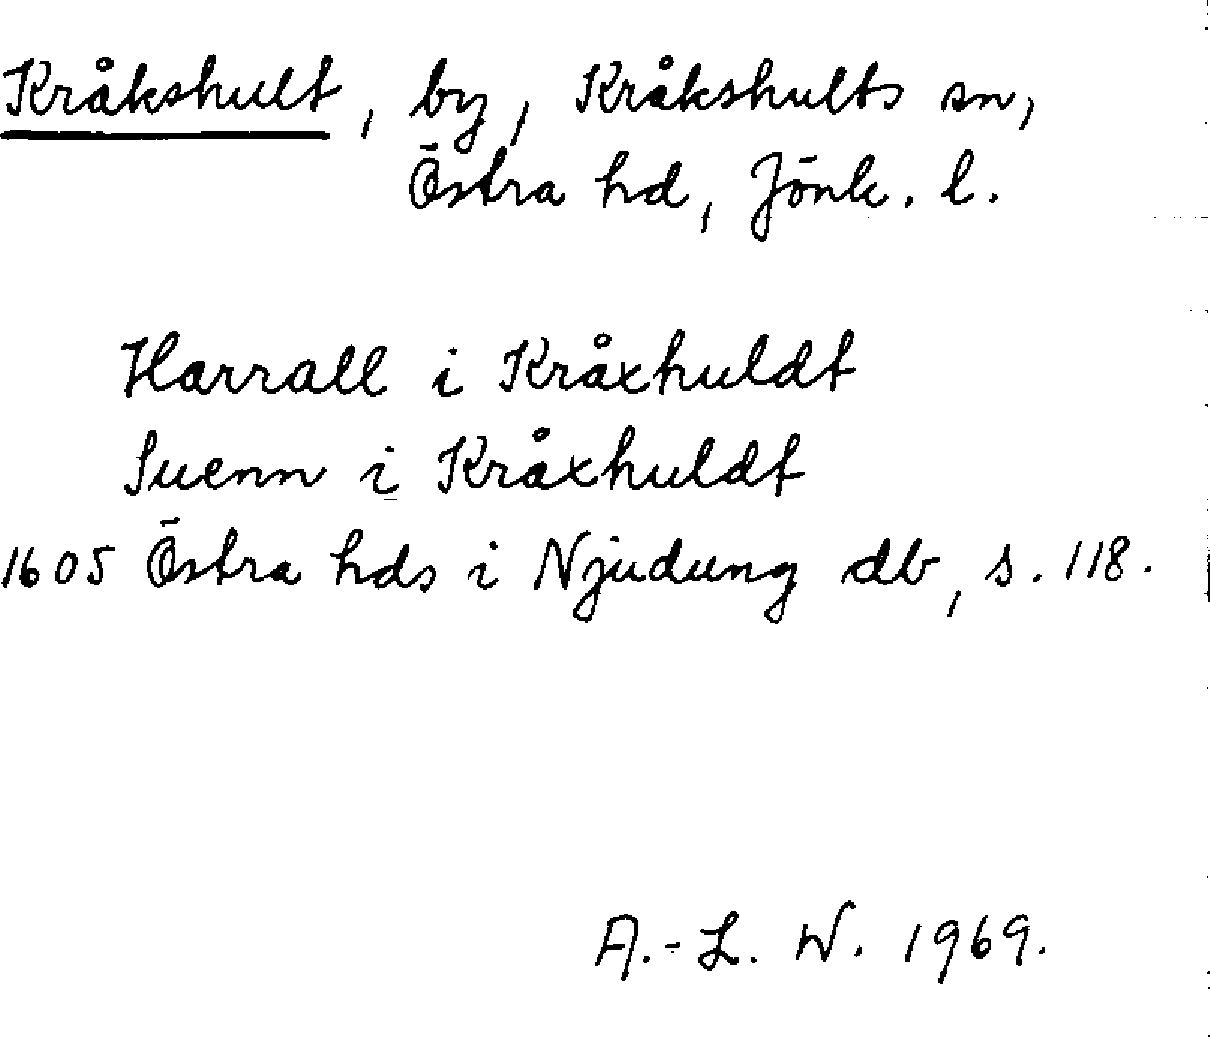 Kråkshult, by, Kråkshults sn,
Östra hd, Jönk. l.
Harrall i Kråxhuldt
Suenn i Kråxhuldt
1605 Östra hds i Njudung db, s. 118.
A.-L. W. 1969.